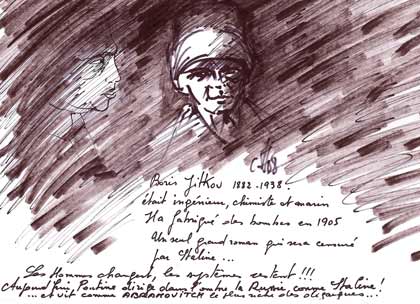 C.V08
Boris Jitkov 1882-1938...
était ingénieur, chimiste et marin
Il a fabriqué des bombes en 1905
Un seul grand roman qui sera censuré
par Staline...
Les Hommes changent, les systèmes restent !!!
Aujourd'hui, Poutine dirige dans l'ombre la Russie, comme Staline !
... et vit comme ABRAMOVITCH le plus riche des oligarques...